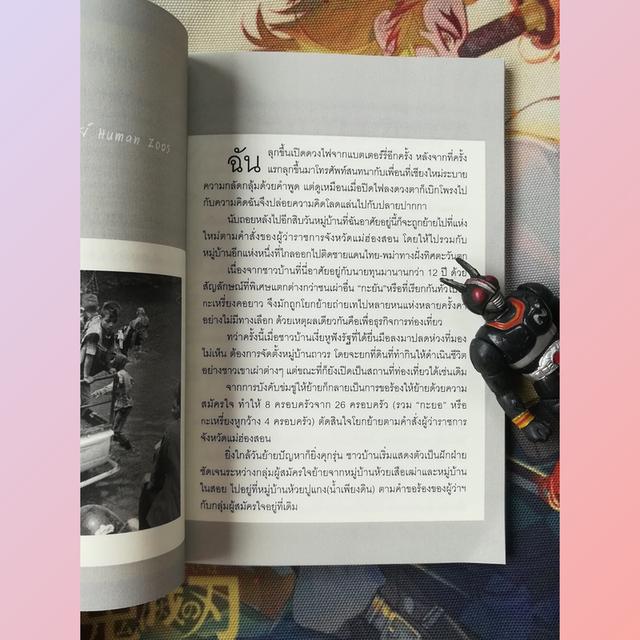 Human Zoos
ฉัน ลุกขึ้นเปิดดวงไฟจากแบตเตอร์รี่อีกครั้ง หลังจากที่ครั้ง
แรกลุกขึ้นมาโทรศัพท์สนทนากับเพื่อนที่เชียงใหม่ระบาย
ความกลัดกลุ้มด้วยคำพูด แต่ดูเหมือนเมื่อปิดไฟลงดวงตาก็เบิกโพรงไป
กับความคิดฉันจึงปล่อยความคิดโลดแล่นไปกับปลายปากกา
นับถอยหลังไปอีกสิบวันหมู่บ้านที่ฉันอาศัยอยู่นี้ก็จะถูกย้ายไปที่แห่ง
ใหม่ตามคำสั่งของผู้ว่าราชการจังหวัดแม่ฮ่องสอน โดยให้ไปรวมกับ
หมู่บ้านอีกแห่งหนึ่งที่ไกลออกไปติดชายแดนไทย-พม่าทางฝั่งทิศตะวันตก
เนื่องจากชาวบ้านที่นี่อาศัยอยู่กับนายทุนมานานกว่า 12 ปี ด้วย
สัญลักษณ์ที่พิเศษแตกต่างกว่าชนเผ่าอื่น "กะยัน"หรือที่เรียกกันทั่วไป
กะเหรี่ยงคอยาว จึงมักถูกโยกย้ายถ่ายเทไปหลายหนแห่งหลายครั้งครา
อย่างไม่มีทางเลือก ด้วยเหตุผลเดียวกันคือเพื่อธุรกิจการท่องเที่ยว
ทว่าครั้งนี้เมื่อชาวบ้านเงี่ยหูฟังรัฐที่ได้ยื่นมือลงมาปลดห่วงที่มอง
ไม่เห็น ต้องการจัดตั้งหมู่บ้านถาวร โดยจะยกที่ดินที่ทำกินให้ดำเนินชีวิต
อย่างชาวเขาเผ่าต่างๆ แต่ขณะที่ก็ยังเปิดเป็นสถานที่ท่องเที่ยวได้เช่นเดิม
จากการบังคับข่มขู่ให้ย้ายก็กลายเป็นการขอร้องให้ย้ายด้วยความ
สมัครใจ ทำให้ 8 ครอบครัวจาก 26 ครอบครัว (รวม "กะยอ" หรือ
กะเหรี่ยงหูกว้าง 4 ครอบครัว) ตัดสินใจโยกย้ายตามคำสั่งผู้ว่าราชการ
จังหวัดแม่ฮ่องสอน
ยิ่งใกล้วันย้ายปัญหาก็ยิ่งคุกรุ่น ชาวบ้านเริ่มแสดงตัวเป็นฝักฝ่าย
ชัดเจนระหว่างกลุ่มผู้สมัครใจย้ายจากหมู่บ้านห้วยเสือเฒ่าและหมู่บ้าน
ในสอย ไปอยู่ที่หมู่บ้านห้วยปูแกง(น้ำเพียงดิน) ตามคำขอร้องของผู้ว่าฯ
กับกลุ่มผู้สมัครใจอยู่ที่เดิม